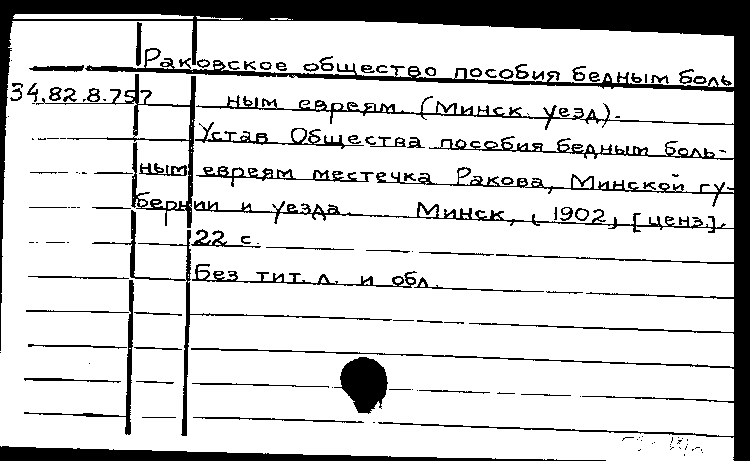 Раковское общество пособия бедным боль
34.82.8.757 ным евреям. (Минск. уезд).
Устав Общества пособия бедным боль-
ным евреям местечка Ракова, Минской гу-
бернии и уезда. Минск, [1902, [ценз.].
22 с.
Без тит. л. и обл.